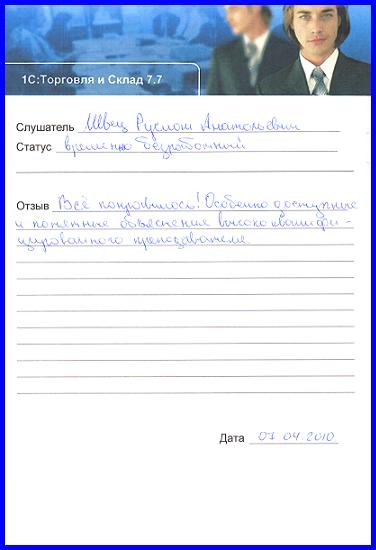 1С:Торговля и Склад 7.7
Слушатель Швец Руслан Анатольевич
Статус временно безработный
Отзыв Всё понравилось! Особенно доступные
и понятные объяснения высококвалифи-
цированного преподавателя.
Дата 07 04 2010